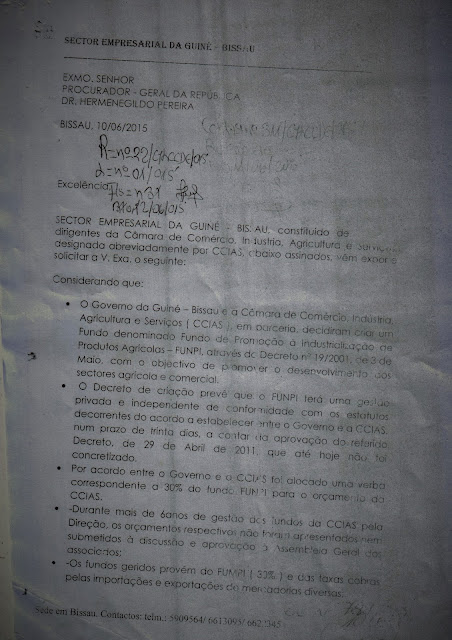 SECTOR EMPRESARIAL DA GUINÉ – BISSAU
EXMO. SENHOR
PROCURADOR - GERAL DA REPÚBLICA
DR. HERMENEGILDO PEREIRA
BISSAU, 10/06/2015
R=nº22/
L=nº01/015
Excelência
Fls=nº31
12/06/015
SECTOR EMPRESARIAL DA GUINÉ - BISSAU, constituído de
dirigentes da Câmara de Comércio, Industria, Agricultura e Serviços
designada abreviadamente por CCIAS, abaixo assinados, vêm expor e
solicitar a V. Exa. o seguinte:
Considerando que:
• O Governo da Guiné – Bissau e a Câmara de Comércio, Industria,
Agricultura e Serviços ( CCIAS ), em parceria, decidiram criar um
Fundo denominado Fundo de Promoção à Industrialização de
Produtos Agrícolas – FUNPI, através do Decreto nº 19/2001, de 3 de
Maio, com o objectivo de promover o desenvolvimento dos
sectores agrícola e comercial.
• O Decreto de criação prevê que o FUNPI terá uma gestão
privada e independente de conformidade com os estatutos
decorrentes do acordo a estabelecer entre o Governo e a CCIAS,
num prazo de trinta dias, a contar da aprovação do referido
Decreto, de 29 de Abril de 2011, que até hoje não foi
concretizado.
• Por acordo entre o Governo e a CCIAS foi alocado uma verba
correspondente a 30% do fundo FUNPI para o orçamento da
CCIAS.
• -Durante mais de 6anos de gestão dos fundos da CCIAS pela
Direção, os orçamentos respectivos não foram apresentados nem
submetidos à discussão e aprovação à Assembleia Geral dos
associados;
• -Os fundos geridos provêm do FUNPI ( 30% ) e das taxas cobras
pelas importações e exportações de mercadorias diversas;
Sede em Bissau. Contactos: telm.: 5909564/ 6613095/